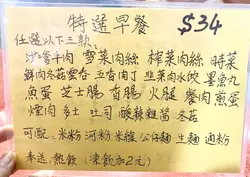 特選早餐 $34
任選以下三款、
沙嗲牛肉 雪菜肉絲 榨菜肉絲 時菜
鮮肉冬菇雲吞 五香肉丁 韮菜肉水餃 墨魚丸
魚蛋 芝士腸 香腸 火腿 餐肉 煎蛋
煙肉 多士 吐司 酸辣雜 冬菇
可配、米粉 河粉 米線 公仔麵 生麵 通粉
本送、熱飲 (凍飲加2元)